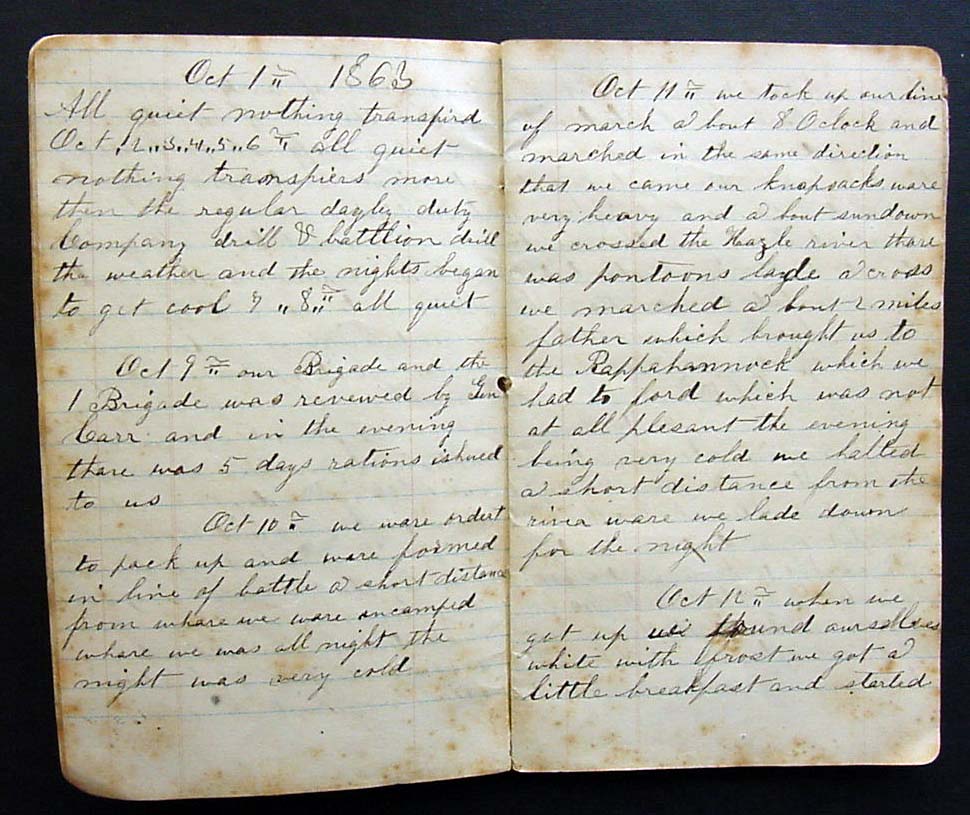 Oct 1" 1863
All quiet nothing transpird
Oct. 2..3..4..5..6" all quiet
nothing transpiers more
then the regular dayley duty
Company drill & battlion drill
the weather and the nights began
to get cool 7 "8" all quiet
Oct 9" our Brigade and the
1 Brigade was revewed by Gen
Carr and in the evening
thare was 5 days rations ishued
to us
Oct 10" we ware ordert
to pack up and ware formed
in line of battle a short distance
from whare we ware incamped
whare we was all night the
night was very cold
Oct 11" we took up our line
of march a bout 8 Oclock and
marched in the same direction
that we came our knapsacks ware
very heavy and a bout sundown
we crossed the Hazle river thare
was pontoons layde a cross
we marched a bout 2 miles
father which brought us to
the Rappahannock which we
had to ford which was not
at all plesant the evening
being very cold we halted
a short distance from the
river ware we lade down
for the night
Oct 12" when we
got up we found ourselves
white with frost we got a
little breakfast and started